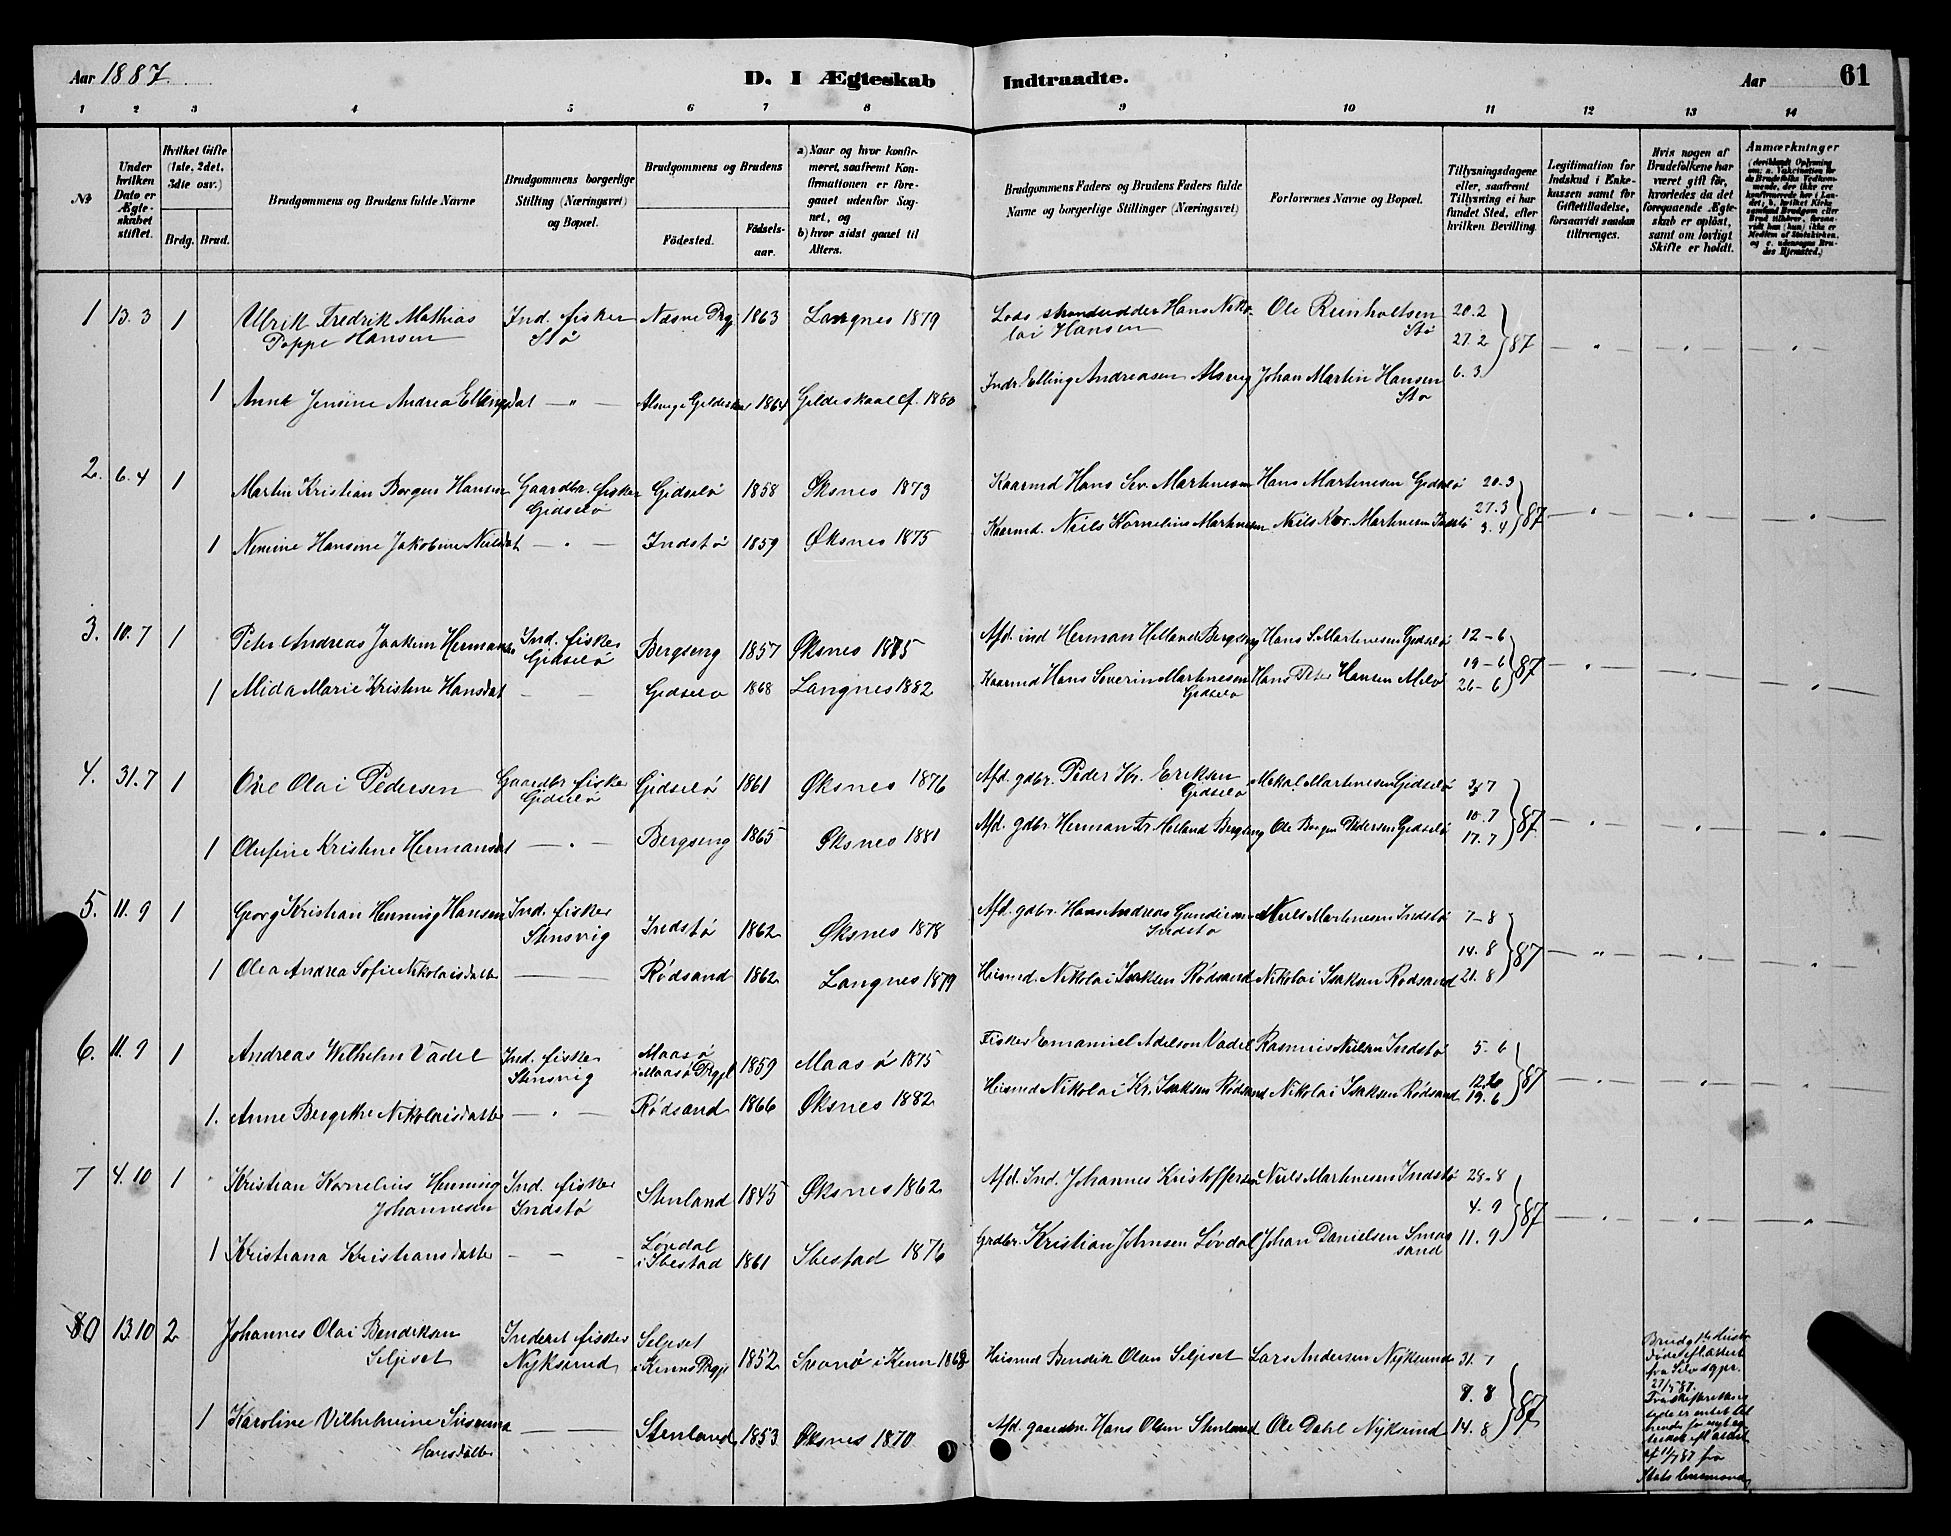 Aar 1887
D. I Ægteskab Indtraadte.
Aar
61
1 2 3 4 5 6 7 8 9 10 11 12 13 14
№
Under hvilken Dato er Ægteskabet stiftet.
Hvilket Gifte (1ste, 2det, 3die osv.)
Brdg. Brud.
Brudgommens og Brudens fulde Navne
Brudgommens borgerlige Stilling (Næringsvei) og Bopæl.
Brudgommens og Brudens
Fødested.
Fødselsaar.
a) Naar og hvor konfirmeret, saafremt Konfirmationen er foregaaet udenfor Sognet, og
b) hvor sidst gaaet til Alters.
Brudgommens Faders og Brudens Faders fulde Navne og borgerlige Stillinger (Næringsvei)
Forlovernes Navne og Bopæl.
Tillysningsdagene eller, saafremt Tillysning ei har fundet Sted, efter hvilken Bevilling.
Legitimation for Indskud i Enkekassen samt for Giftetilladelse, forsaavidt saadan tiltrænges.
Hvis nogen af Brudefolkene har været gift før, hvorledes da det foregaaende Ægteskab er opløst, samt om lovligt Skifte er holdt.
Anmærkninger
1 13.3 1 Ulrik Fredrik Mathias Poppe Hansen Ind. fisker Stø Næsne Prgj 1863 Langnes 1879 Lods Hans Nikolai Hansen Ole Reinholtsen Stø 20.2 27.2 6.3 87
1 Anne Jensine Andrea Ellingsdat — " — Alsvig i Gildeskaal 1864 Gildeskaal 1880 Indr Elling Andreasen Alsvig Johan Martin Hansen Stø
2. 6.4 1 Martin Kristian Borgen Hansen Gaardbr. fisker Gidselø Gidselø 1858 Øksnes 1873 Kaarmd Hans Sev. Martinesen Hans Martinesen Gidselø 20.3 27.3 3.4 87
1 Nensine Hansine Jakobine Nielsdat — " — Indstø 1859 Øksnes 1875 Kaarmd. Niels Kornelius Martinesen Niels Kor. Martinesen Indstø
3. 10.7 1 Peter Andreas Joakim Hermansen Ind. fisker Gidselø Bergseng 1857 Øksnes 1875 Afd. ind Herman Helland Bergseng Hans S. Martinesen Gidselø 12-6 19-6 26-6 87
1 Mida Marie Kristine Hansdat — — Gidselø 1868 Langnes 1882 Kaarmd Hans Severin Martinesen Gidselø Hans Peter Hansen Melø
4. 31.7 1 Ove Olai Pedersen Gaardbr fisker Gidselø Gidselø 1861 Øksnes 1876 Afd. gdbr. Peder Kr. Eriksen Gidselø Mekal Martinesen Gidselø 3.7 10.7 17.7 87
1 Olufine Kristine Hermansdat — " — Bergseng 1865 Øksnes 1881 Afd. gdbr. Herman Fr. Helland Bergseng Ole Borgen Pedersen Gidselø
5. 11.9 1 Georg Kristian Henning Hansen Ind. fisker Stensvig Indstø 1862 Øksnes 1878 Afd. gdbr. Hans Andreas Gundersen Indstø Niels Martinesen Indstø 7-8 14.8 21.8 87
1 Olea Andrea Sofie Nikolaisdatter — — Rødsand 1862 Langnes 1879 Husmd. Nikolai Isaksen Rødsand Nikolai Isaksen Rødsand
6. 11.9 1 Andreas Wilhelm Vadel Ind. fisker Stensvig Maasø i Maasø Prgjl 1859 Maasø 1875 Fisker Emanuel Adelson Vadel Rasmus Nielsen Indstø 5.6 12.6 19.6 87
1. Anne Bergithe Nikolaisdatter — " — Rødsand 1866 Øksnes 1882 Husmd Nikolai Kr. Isaksen Rødsand Nikolai Isaksen Rødsand
7 4.10 1 Kristian Kornelius Henning Johannesen Ind. fisker Indstø Stenland 1845 Øksnes 1862 Afd. Ind. Johannes Kristoffersen Niels Martinesen Indstø 28-8 4.9 11.9 87
1 Kristiana Kristiansdatter — — Løvdal i Ibestad 1861 Ibestad 1876 Grdbr. Kristian Johnsen Løvdal Johan Danielsen Smaasand
8 13.10 2 Johannes Olai Bendiksen Seljeset Inderst fisker Nyksund Seljeset i Kinns Prgjl 1852 Svanø i Kinn 1868 Husmd Bendik Olsen Seljeset Lars Andersen Nyksund 31.7 8.8 14.8 87
1 Karoline Vilhelmine Susanna Hansdatter — — Stenland 1853 Øksnes 1870 Afd. gaardbr. Hans Olsen Stenland Ole Dahl Nyksund